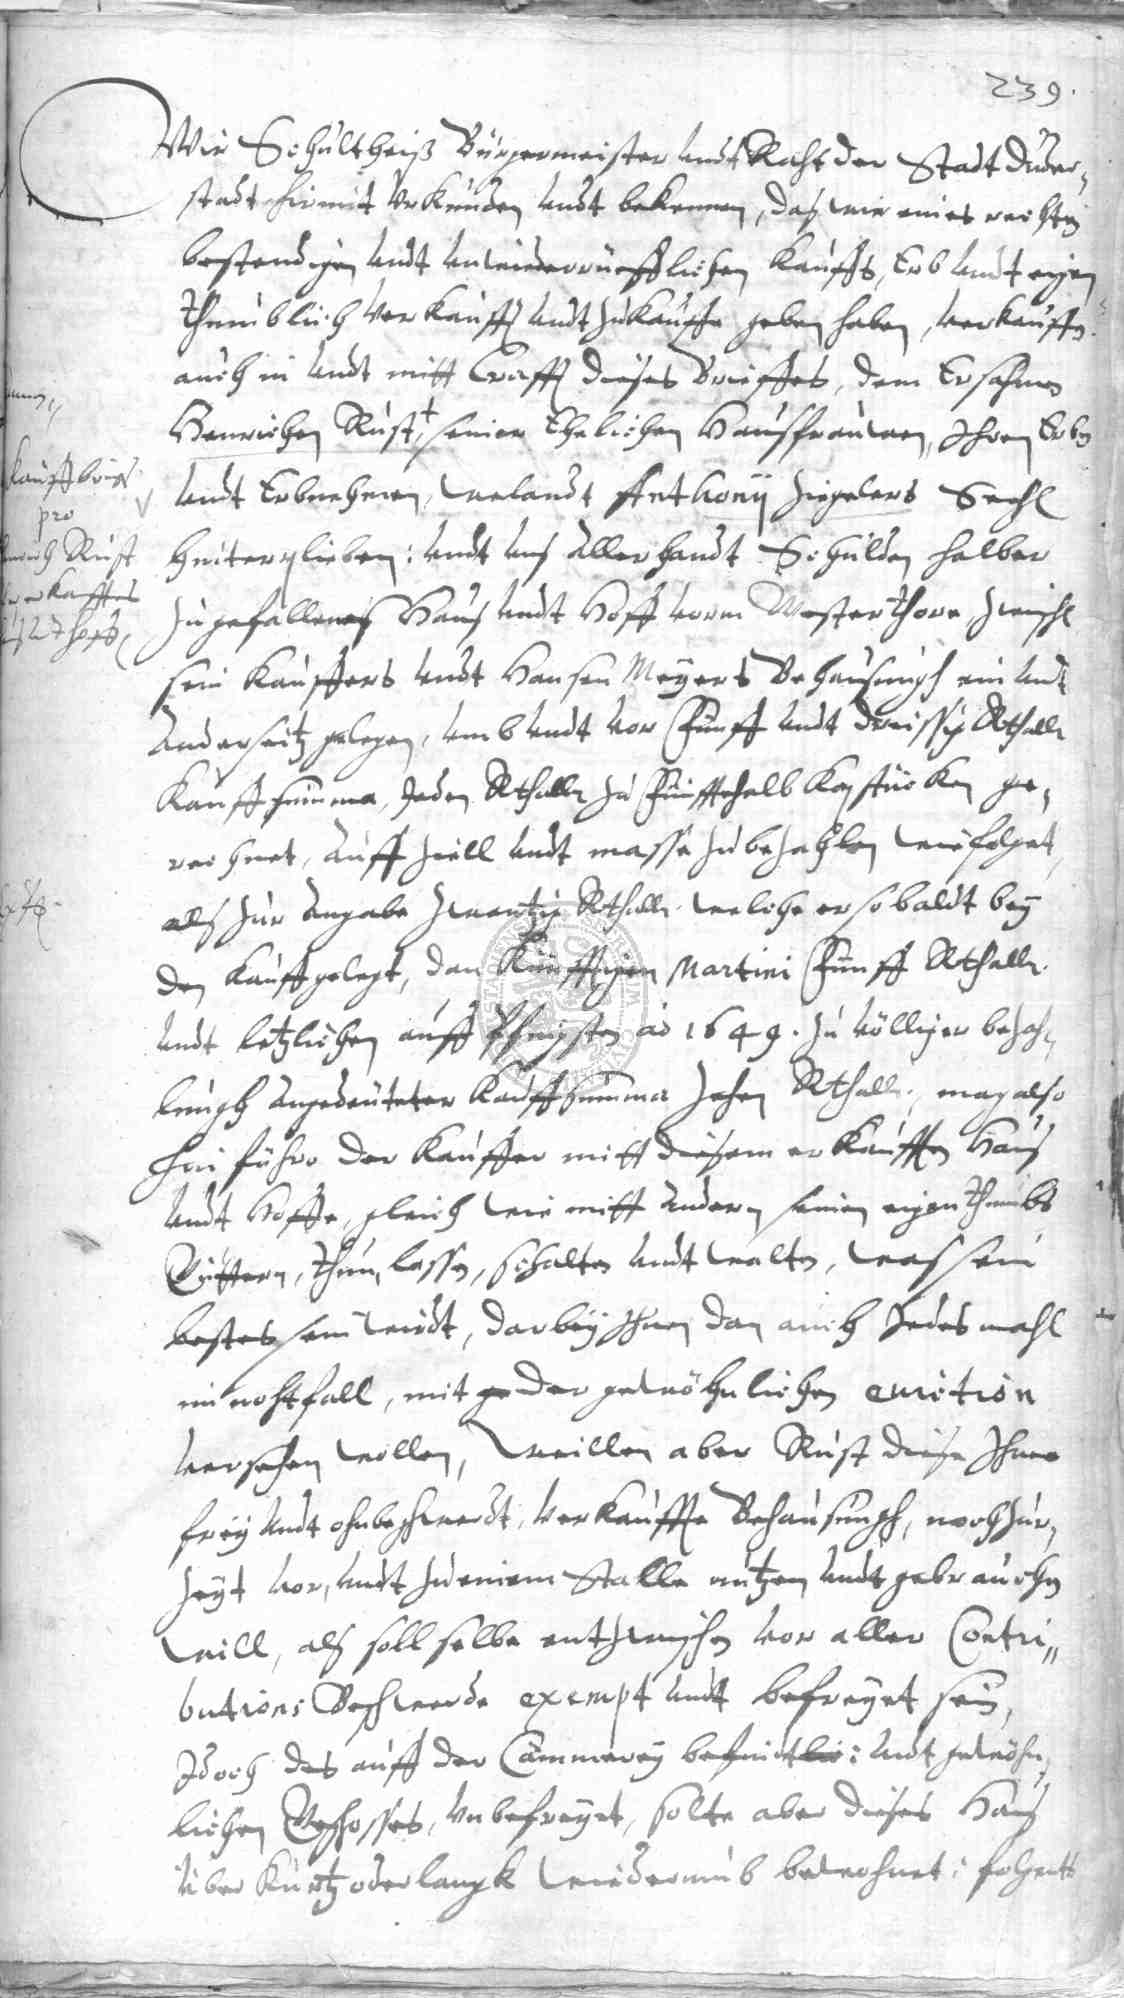 239.
Wir Schultheiß Bürgermeister undt Raht der Stadt Duder-
stadt hirmit Urkunden undt bekennen, daß wir eines rechten
bestendigen undt unwiederrüefflichen Kauffs, Erb undt eigen
thumblich verkaufft undt zukauffe geben haben, verkauffen
auch in undt mitt Crafft dieses Brieffes, dem Ersahmen
Henrichen Rust, seiner Ehelichen Haußfrauwen, Ihren Erben
undt Erbnehmen, welandt Anthonij Ziegelers Seehl
hinterplieben: undt unß allerhandt Schulden halber
zugefallenes Hauß undt Hoff vorm Westerthore zwischen
sein Kauffers undt Hansen Meyers Behausungh ein undt
anderseitz gelegen, umb undt vor Fünff undt dreissig Rthall
Kauffsumma, Jeden Rthall zu Fünfftehalb Kopstücken ge-
rechnet, auff ziell undt masse zubezahlen wie folget,
alß zur Angabe zwantzig Rthall. welche er so baldt bey
den Kauff gelegt, dan Künfftigen Martini Fünff Rthall.
undt letzlichen auff Pfingsten ao 1649. zu völliger bezah-
lungh angedeuteter Kauffsumma zehen Rthall., mag also
hinführo der Kauffer mitt diesem erkaufften Hauß
undt Hoffe, gleich wie mitt andern seinen eigenthumbs
Güttern, thun, lassen, schalten undt walten, waß sein
bestes sein wirdt, darbey Ihnen dan auch Jedesmahl
im nohtfall, mit der gewöhnlichen eviction
versehen wollen, Weillen aber Rust diese Ihme
frey undt ohnbeschwerdt, verkauffte Behausungh, noch zur
zeyt vor, undt zu einem Stalle nutzen undt gebrauchen
will, alß soll selbe entzwischen vor aller Contri-
butions Beschwerde exempt undt befreyet sein,
Idoch des auff der Cämmerey befindt: undt gewöhn-
lichen Geschosses, unbefreyet, solte aber dieses Hauß
über Kurtz oder langk wiederumb bewohnet: folgents
Kauffbrieff
pro
Henrich Rust